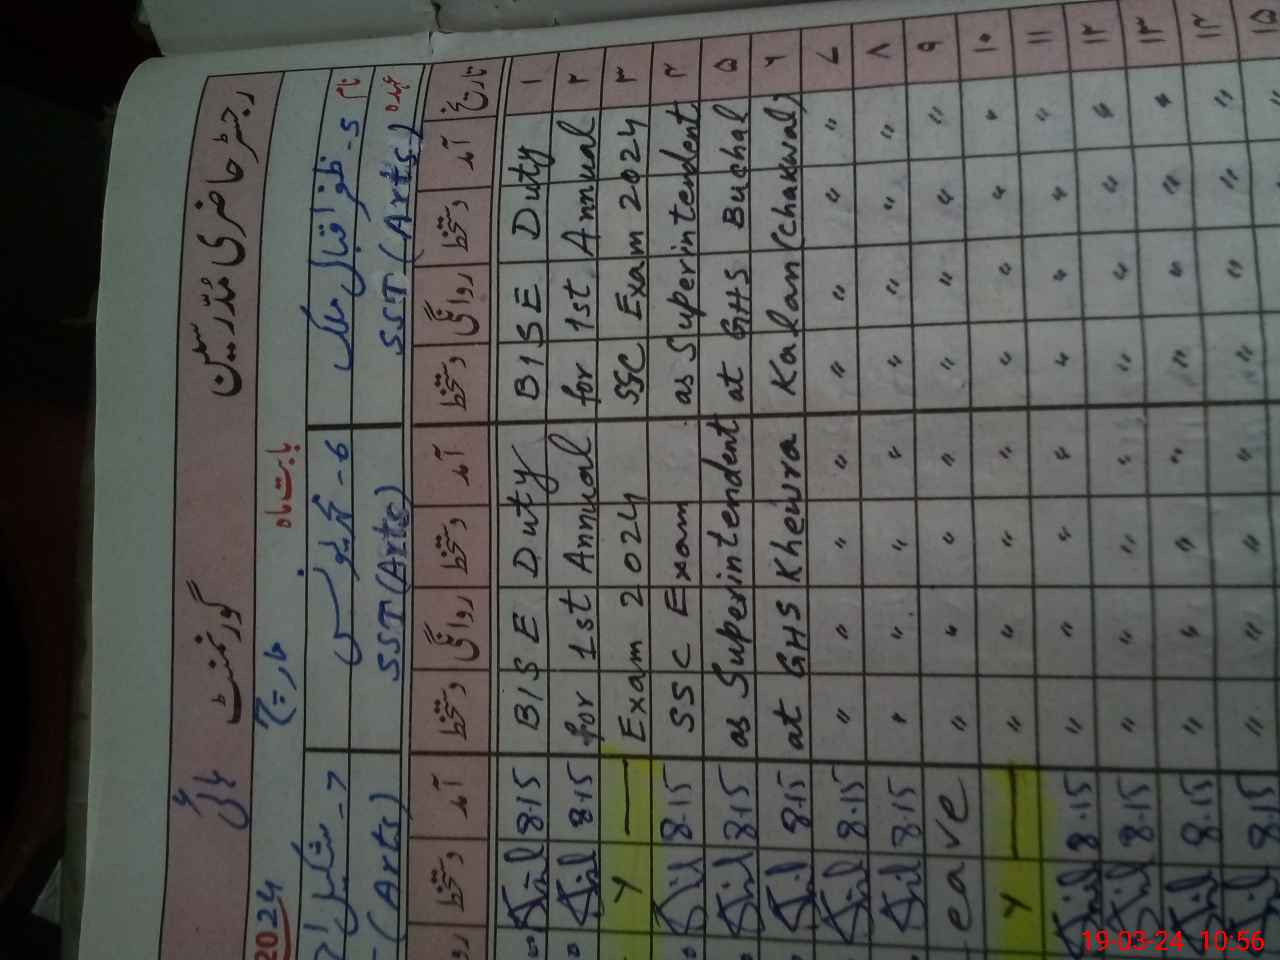 رجسٹر حاضری مدرّسین
گورنمنٹ
ہائی
بابت ماہ
مارچ
2024
نام
5- ظفر اقبال ملک
6-
7-
عہدہ
SST (Arts)
SST (Arts)
(Arts)
تاریخ
آمد
دستخط
روانگی
دستخط
آمد
دستخط
روانگی
دستخط
آمد
دستخط
۱
BISE Duty
BISE Duty
8.15
۲
for 1st Annual
for 1st Annual
8.15
۳
SSC Exam 2024
Exam 2024
y
۴
as Superintendent
SSC Exam
8.15
۵
at GHS Buchal
as Superintendent
8.15
۶
Kalan (Chakwal)
at GHS Khewra
8.15
۷
" " " " " " " "
8.15
۸
" " " " " " " "
8.15
۹
" " " " " " " "
eave
۱۰
" " " " " " " "
y
۱۱
" " " " " " " "
8.15
۱۲
" " " " " " " "
8.15
۱۳
" " " " " " " "
8.15
۱۴
" " " " " " " "
8.15
۱۵
19-03-24 10:56